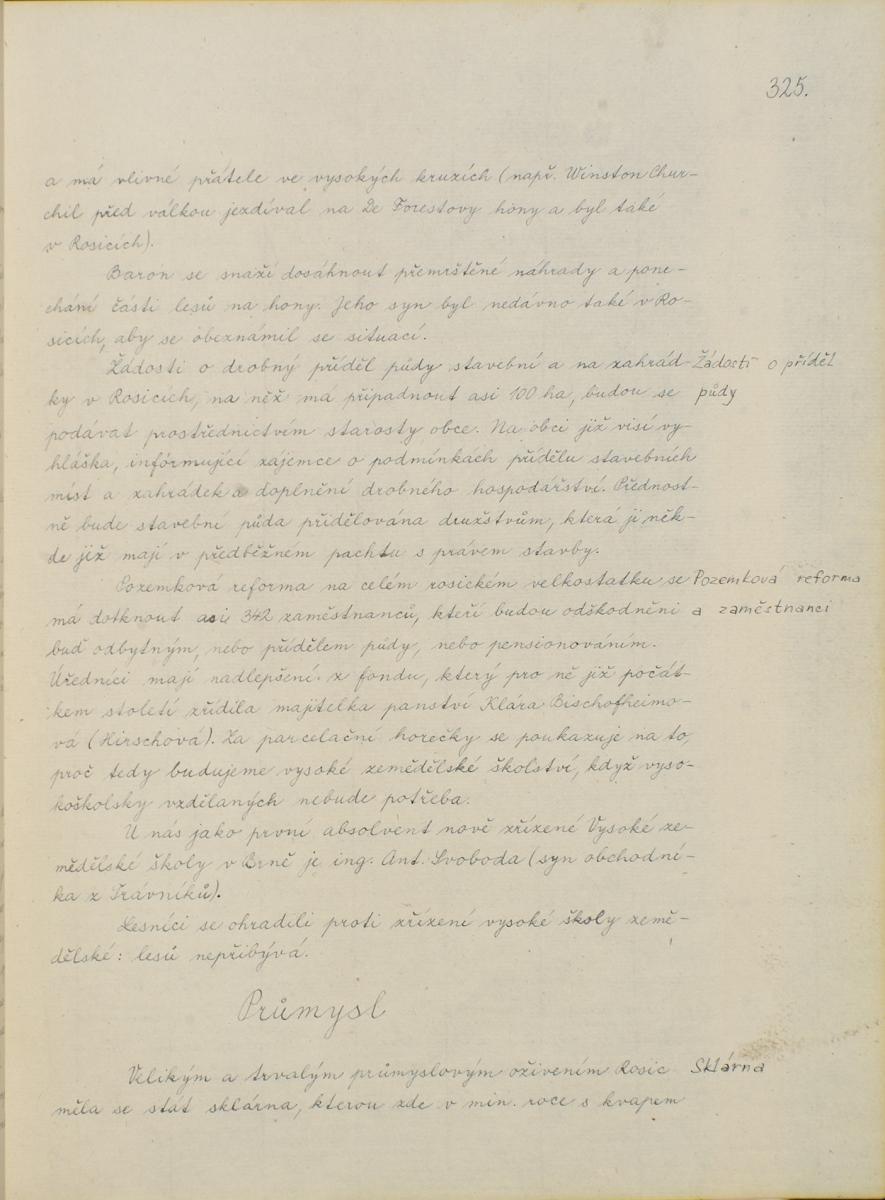 325.
a má vlivné přátele ve vysokých kruzích (např. Winston Chur-
chil před válkou jezdíval na De Forestovy hony a byl také
v Rosicích).
Baron se snaží dosáhnout přemrštěné náhrady a pone-
chání části lesů na hony. Jeho syn byl nedávno také v Ro-
sicích, aby se obeznámil se situací.
Žádosti o drobný příděl půdy stavební a na zahrád- Žádosti o příděl
ky v Rosicích, na něž má připadnout asi 100 ha, budou se půdy
podávat prostřednictvím starosty obce. Na obci již visí vy-
hláška, informující zájemce o podmínkách přídělu stavebních
míst a zahrádek a doplnění drobného hospodářství. Přednost-
ně bude stavební půda přidělována družstvům, která ji něk-
de již mají v předběžném pachtu s právem stavby.
Pozemková reforma na celém rosickém velkostatku se Pozemková reforma
má dotknout asi 342 zaměstnanců, kteří budou odškodněni a zaměstnanci
buď odbytným, nebo přídělem půdy, nebo pensionováním.
Úředníci mají nadlepšení z fondu, který pro ně již počát-
kem století zřídila majitelka panství Klára Bischofheimo-
vá (Hirschová). Za parcelační horečky se poukazuje na to,
proč tedy budujeme vysoké zemědělské školství, když vyso-
koškolsky vzdělaných nebude potřeba.
U nás jako první absolvent nově zřízené Vysoké ze-
mědělské školy v Brně je ing. Ant. Svoboda (syn obchodní-
ka z Trávníků).
Lesníci se ohradili proti zřízení vysoké školy země-
dělské: lesů nepřibývá.
Průmysl
Velikým a trvalým průmyslovým oživením Rosic Sklárna
měla se stát sklárna, kterou zde v min. roce s kvapem